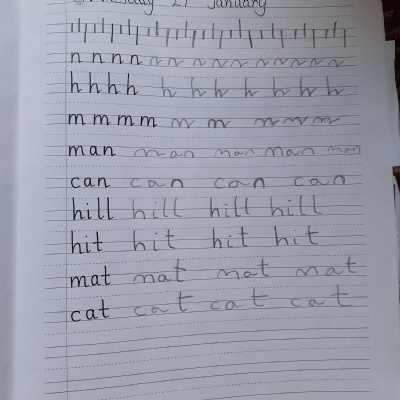 27 January
n n n n n n n n n n n n
h h h h h h h h h h h
m m m m m m m m m
man man man man man
can can can can
hill hill hill hill
hit hit hit hit
mat mat mat mat
cat cat cat cat